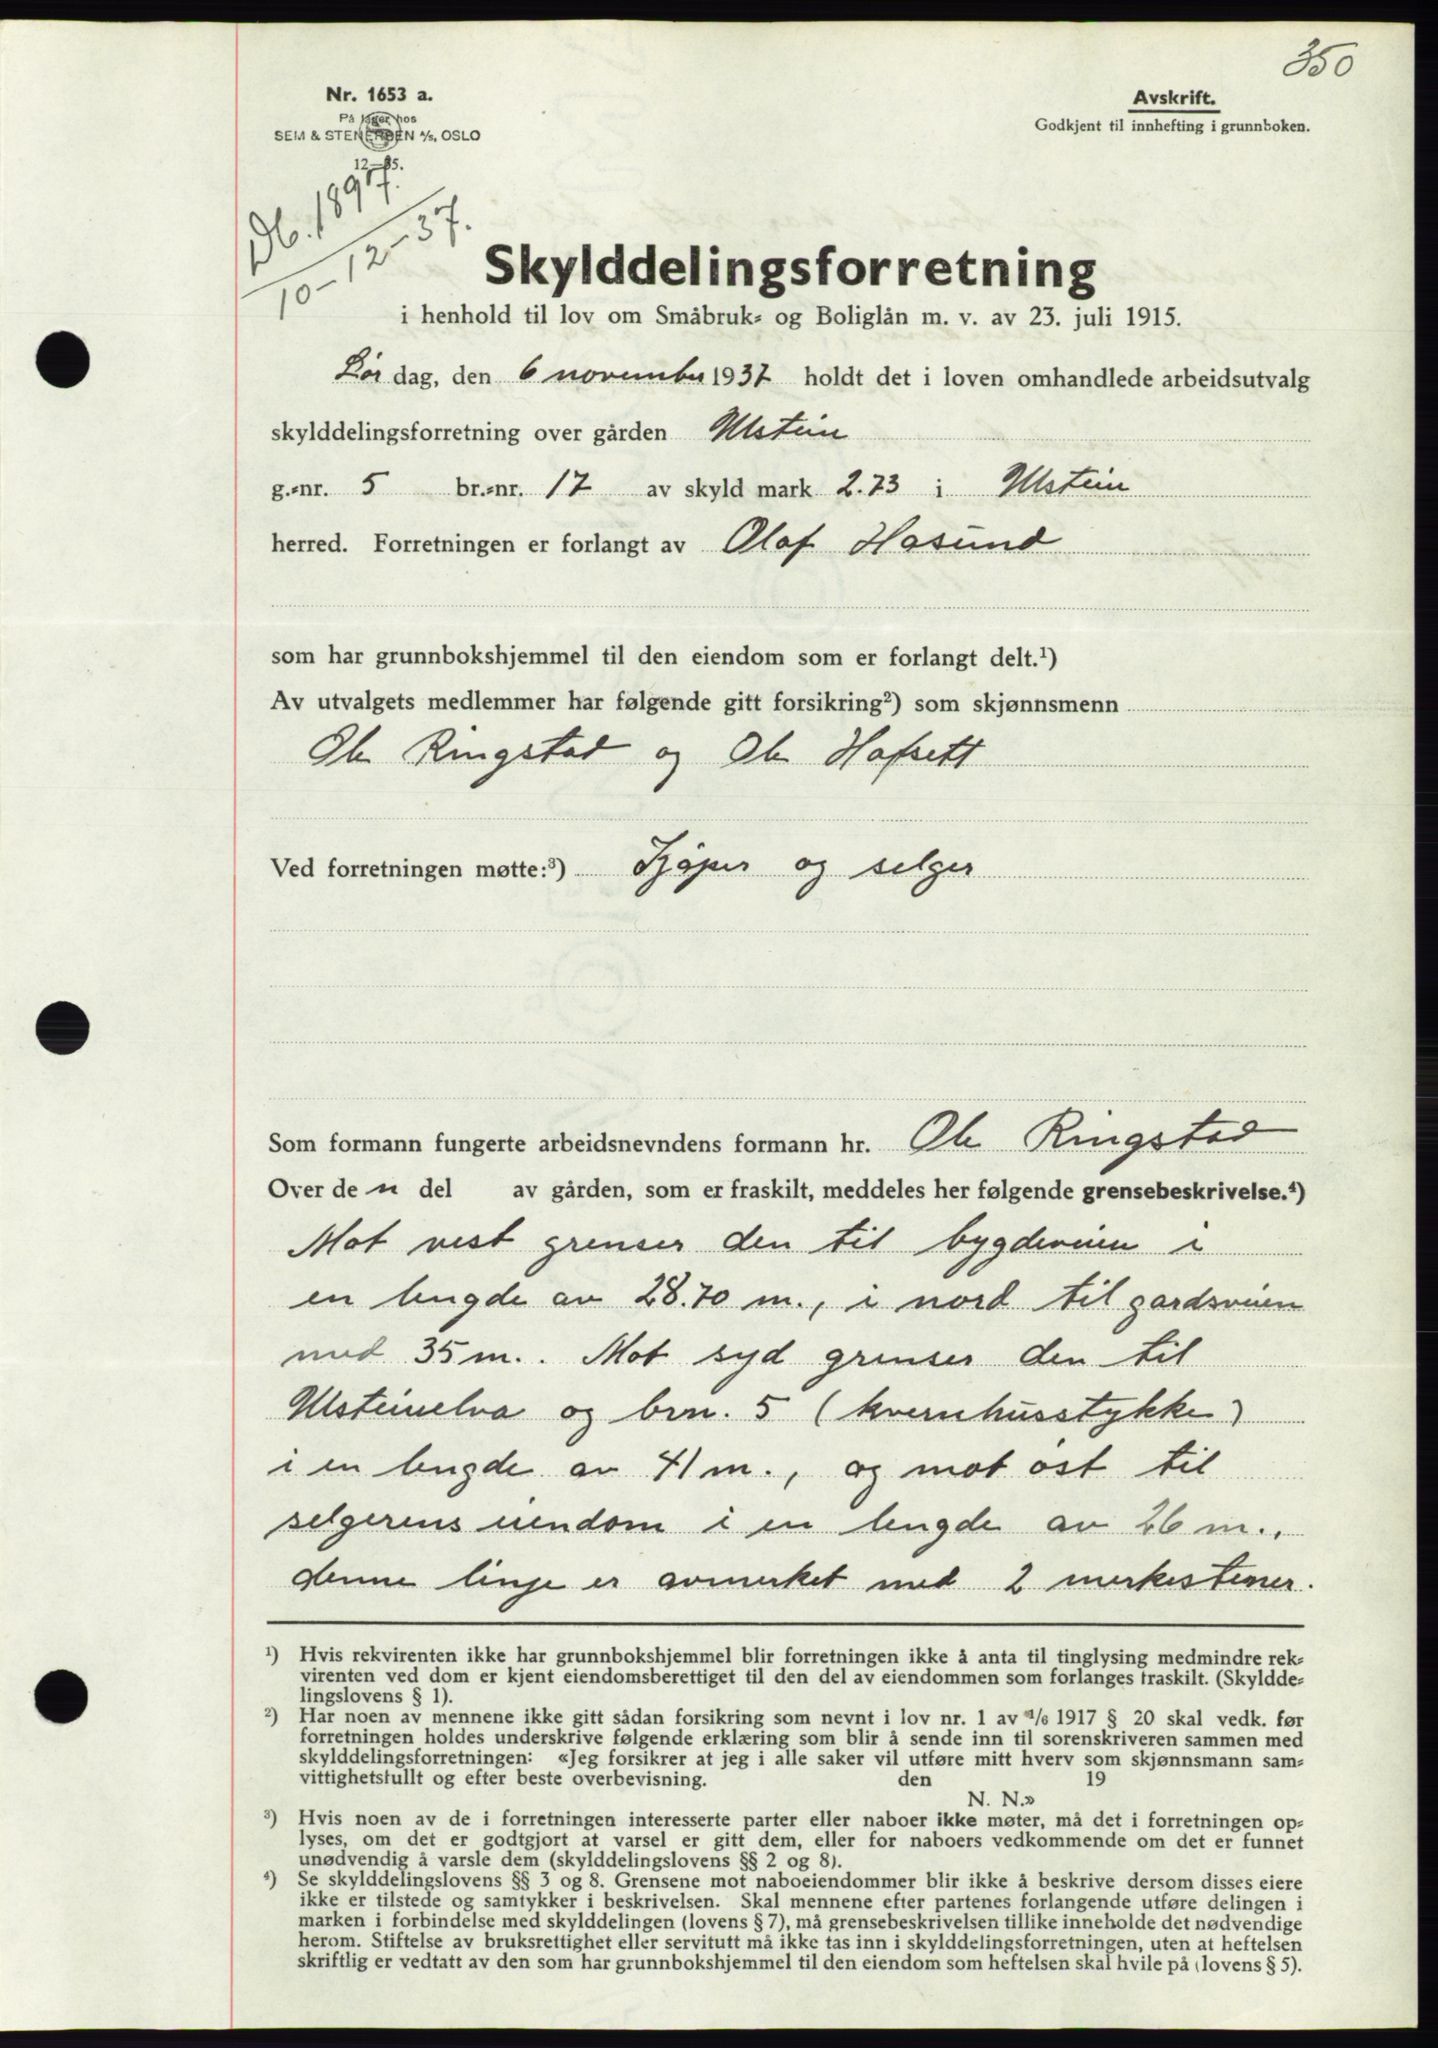 350
Nr. 1653 a.
På lager hos
SEM & STENERSEN A/S, OSLO
12—35.
Avskrift.
Godkjent til innhefting i grunnboken.
Db. 1897.
10-12-37.
Skylddelingsforretning
i henhold til lov om Småbruk- og Boliglån m. v. av 23. juli 1915.
Lør dag, den 6 november 1937 holdt det i loven omhandlede arbeidsutvalg
skylddelingsforretning over gården Ulstein
g.-nr. 5 br.-nr. 17 av skyld mark 2.73 i Ulstein
herred. Forretningen er forlangt av Olaf Hasund
som har grunnbokshjemmel til den eiendom som er forlangt delt.¹)
Av utvalgets medlemmer har følgende gitt forsikring²) som skjønnsmenn
Ole Ringstad og Ole Hafsett
Ved forretningen møtte:³) Kjøper og selger
Som formann fungerte arbeidsnevndens formann hr. Ole Ringstad
Over de n del av gården, som er fraskilt, meddeles her følgende grensebeskrivelse.⁴)
Mot vest grenser den til bygdeveien i
en lengde av 28.70 m., i nord til gardsveien
med 35 m.. Mot syd grenser den til
Ulsteinelva og brn. 5 (kvernhusstykke)
i en lengde av 41 m., og mot øst til
selgerens eiendom i en lengde av 26 m.,
denne linje er avmerket med 2 merkestener.
¹) Hvis rekvirenten ikke har grunnbokshjemmel blir forretningen ikke å anta til tinglysing medmindre rek-
virenten ved dom er kjent eiendomsberettiget til den del av eiendommen som forlanges fraskilt. (Skyldde-
lingslovens § 1).
²) Har noen av mennene ikke gitt sådan forsikring som nevnt i lov nr. 1 av 1/6 1917 § 20 skal vedk. før
forretningen holdes underskrive følgende erklæring som blir å sende inn til sorenskriveren sammen med
skylddelingsforretningen: «Jeg forsikrer at jeg i alle saker vil utføre mitt hverv som skjønnsmann sam-
vittighetsfullt og efter beste overbevisning. den 19
N. N.»
³) Hvis noen av de i forretningen interesserte parter eller naboer ikke møter, må det i forretningen op-
lyses, om det er godtgjort at varsel er gitt dem, eller for naboers vedkommende om det er funnet
unødvendig å varsle dem (skylddelingslovens §§ 2 og 8).
⁴) Se skylddelingslovens §§ 3 og 8. Grensene mot naboeiendommer blir ikke å beskrive dersom disses eiere
ikke er tilstede og samtykker i beskrivelsen. Skal mennene efter partenes forlangende utføre delingen i
marken i forbindelse med skylddelingen (lovens § 7), må grensebeskrivelsen tillike inneholde det nødvendige
herom. Stiftelse av bruksrettighet eller servitutt må ikke tas inn i skylddelingsforretningen, uten at heftelsen
skriftlig er vedtatt av den som har grunnbokshjemmel til den eiendom som heftelsen skal hvile på (lovens § 5).